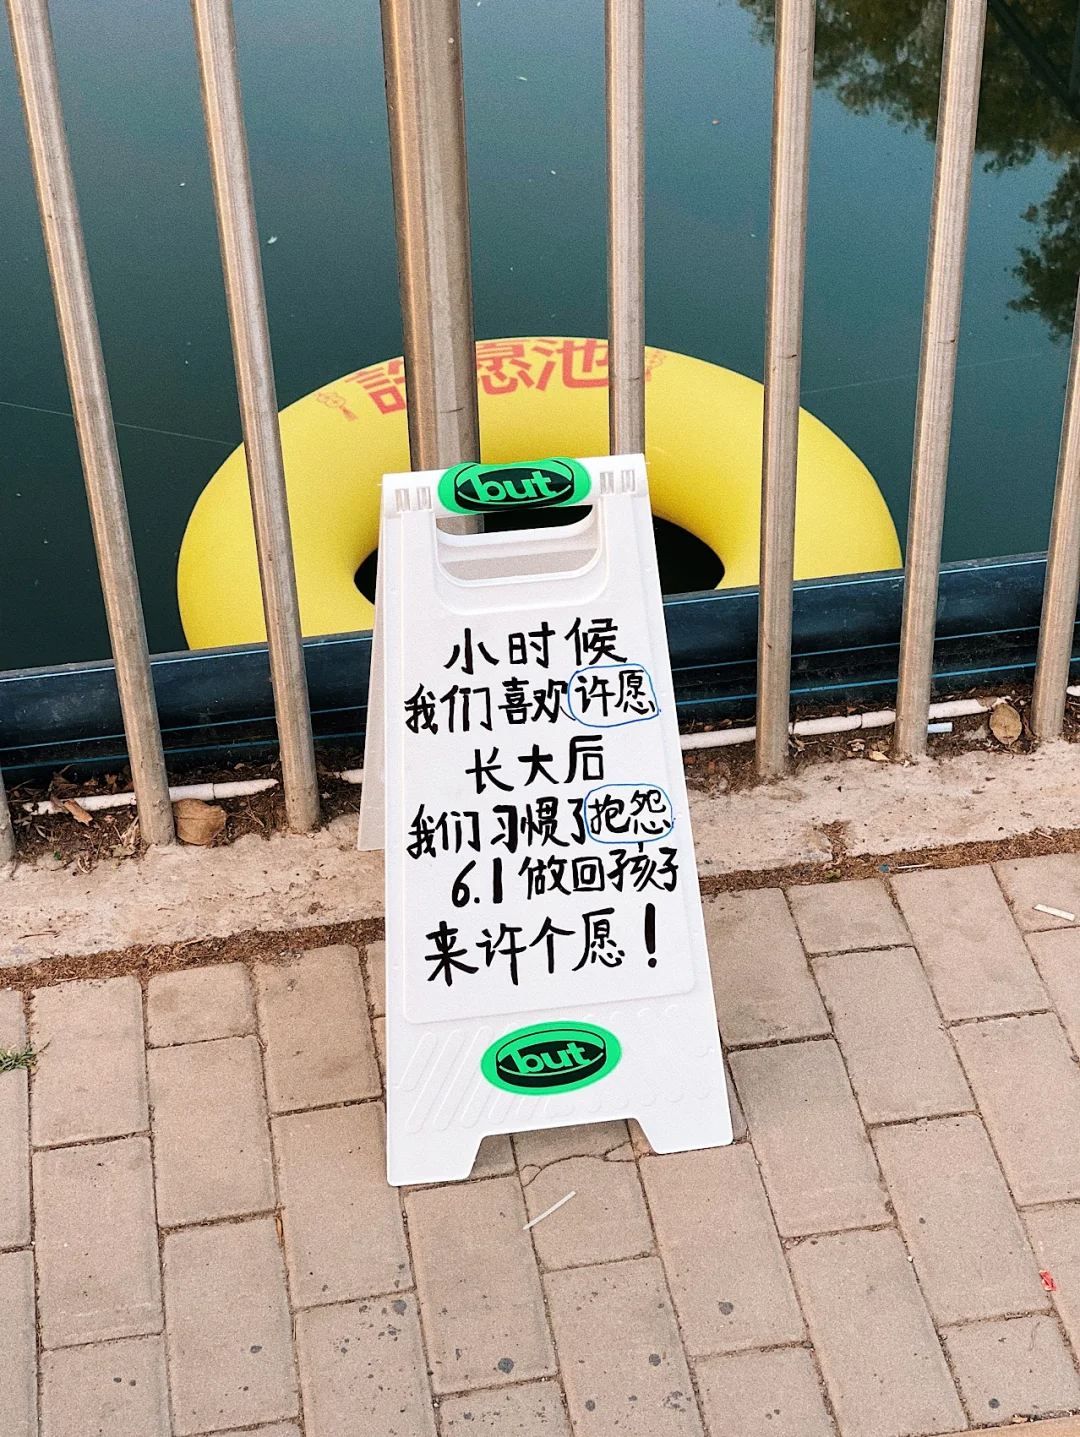 許愿池
but
小时候
我们喜欢许愿
长大后
我们习惯了抱怨
6.1 做回孩子
来许个愿！
but